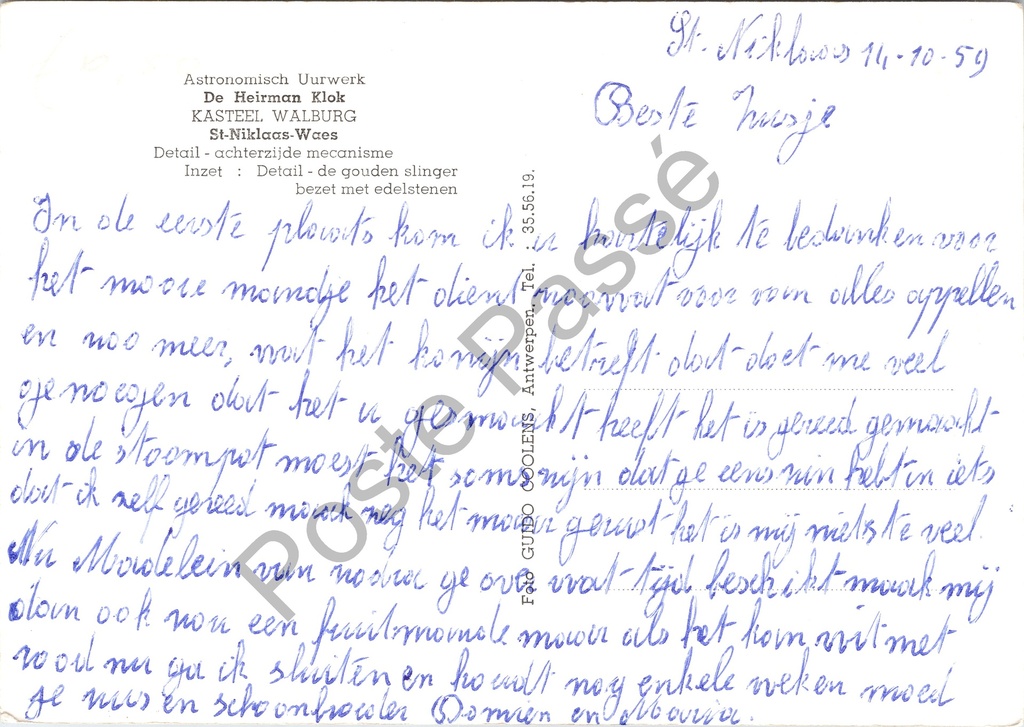 St. Niklaas 14-10-59
Beste Zusje
Astronomisch Uurwerk
De Heirman Klok
KASTEEL WALBURG
St-Niklaas-Waes
Detail - achterzijde mecanisme
Inzet : Detail - de gouden slinger
bezet met edelstenen
Foto GUIDO COOLENS, Antwerpen, Tel. : 35.56.19.
In de eerste plaats kom ik u hartelijk te bedanken voor
het mooie mandje het dient noowat voor van alles appellen
en noo meer, wat het konijn betreft dat doet me veel
genoegen dat het u gesmaakt heeft het is gereed gemaakt
in de stoompot moest het soms zijn dat ge eens zin hebt in iets
dat ik zelf gereed maak zeg het maar gerust het is mij niets te veel.
Nu Madelein van zodra ge over wat tijd beschikt maak mij
dan ook zou een fruitmande maar als het kan wit met
rood nu ga ik sluiten en houdt nog enkele weken moed
je zus en schoonbroeder Domien en Maria.
Poste Passé